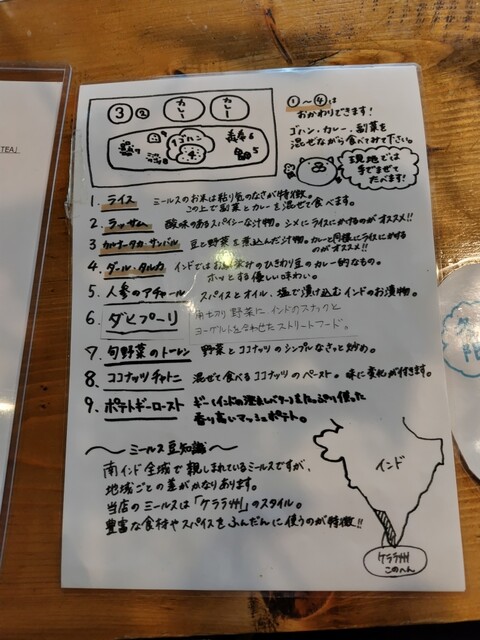 TEA」
③ ② カレー カレー
ゴハン
①〜④は
おかわりできます!
ゴハン・カレー、副菜を
混ぜながら食べてみて下さい。
現地では
手でまぜて
たべます!
1. ライス ミールスのお米は粘り気のなさが特徴。
この上で副菜とカレーを混ぜて食べます。
2. ラッサム 酸味のあるスパイシーな汁物。シメにライスにかけるのがオススメ!!
3. カルナータカ・サンバル 豆と野菜を煮込んだ汁物。カレーと同様にライスにかける
のがオススメ!!
4. ダール・タルカ インドではお馴染みのひきわり豆のカレー的なもの。
ホッとする優しい味わい。
5. 人参のアチャール スパイスとオイル、塩で漬け込むインドのお漬物。
6. ダヒプーリ 角切り野菜にインドのスナックと
ヨーグルトを合わせたストリートフード。
7. 旬野菜のトーレン 野菜とココナッツのシンプルなさっと炒め。
8. ココナッツチャトニ 混ぜて食べるココナッツのペースト。味に変化が付きます。
9. ポテトギーロースト ギー(インドの澄ましバター)をたっぷり使った
香り高いマッシュポテト。
〜 ミールス豆知識 〜
南インド全域で親しまれているミールスですが、
地域ごとの差がかなりあります。
当店のミールスは「ケララ州」のスタイル。
豊富な食材やスパイスをふんだんに使うのが特徴!!
インド
ケララ州
このへん